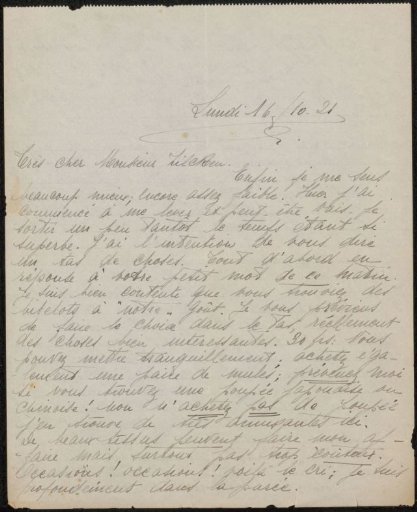 Lundi 16/10-21
Très cher Monsieur Zilcken.
Enfin je me sens
beaucoup mieux, encore assez faible. Hier j'ai
commencé à me lever et peut être vais je
sortir un peu tantôt le temps étant si
superbe. J'ai l'intention de vous dire
un tas de choses. Tout d'abord en
réponse à votre petit mot de ce matin.
Je suis bien contente que vous trouviez des
bibelots à "notre" goût. Je vous
de faire le choix dans le tas, réellement
des choses bien intéressantes. 30 vous
pouvez mettre tranquillement. achetez éga-
lement une paire de mules, moi
si vous trouvez une poupée japonaise ou
chinoise! non n'achetez pas de poupée
j'en trouve de très amusantes ici.
De beaux tissus peuvent faire mon af-
faire mais surtout pas trop couteux.
Occasions! occasions! voilà le cri; je suis
profondément dans la purée.